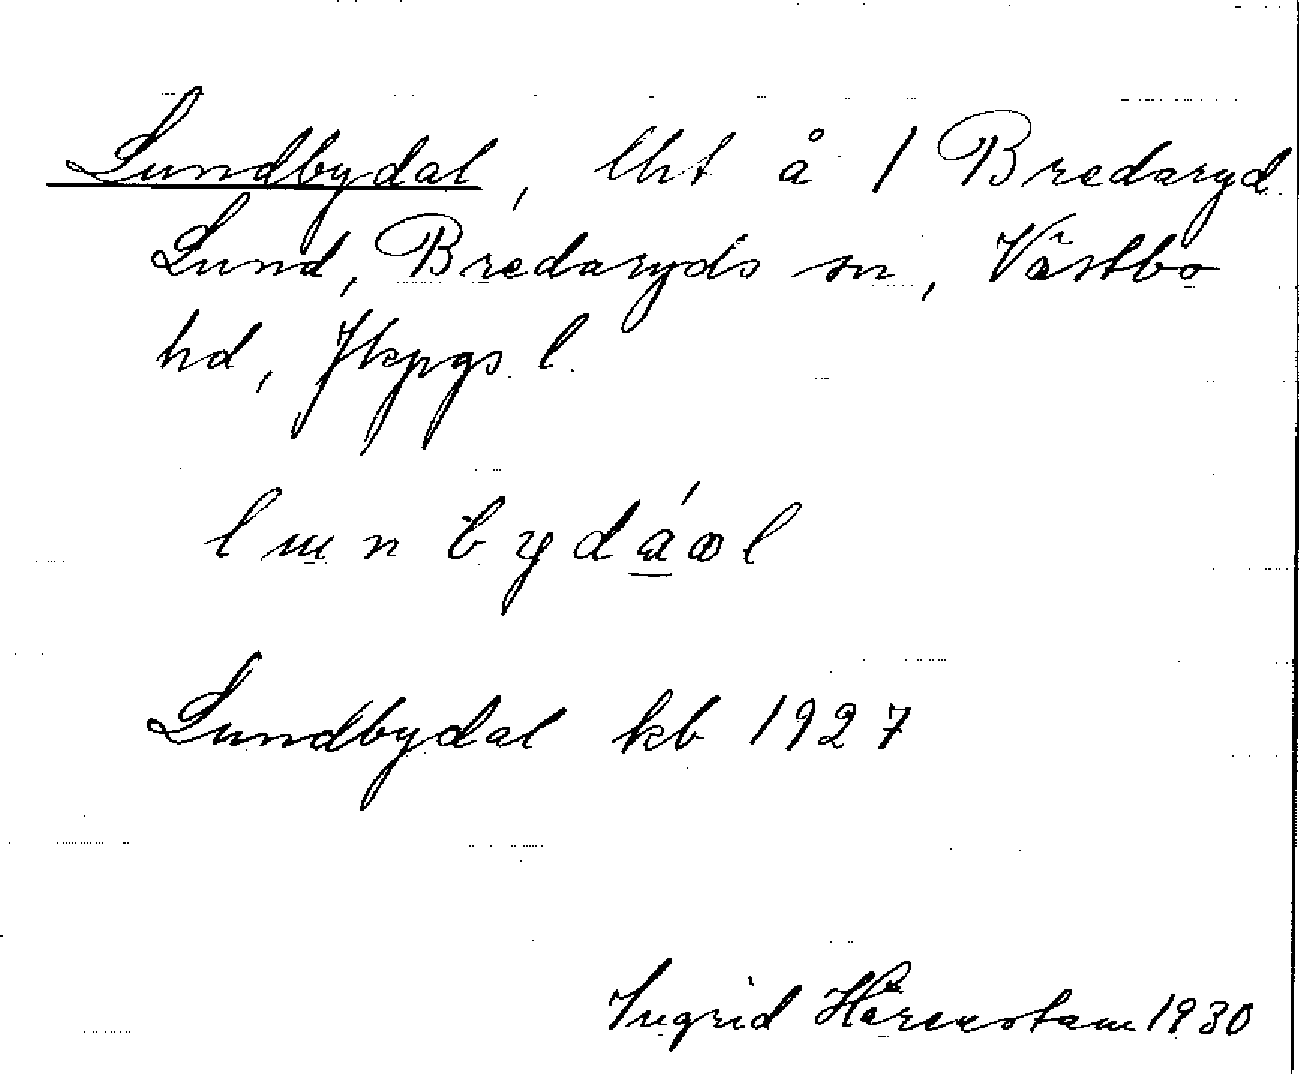 Lundbydal, lht å 1 Bredaryd
Lund, Bredaryds sn, Västbo
hd, Jkpgs l.
Lundbydal kb 1927
Ingrid Härenstam 1930